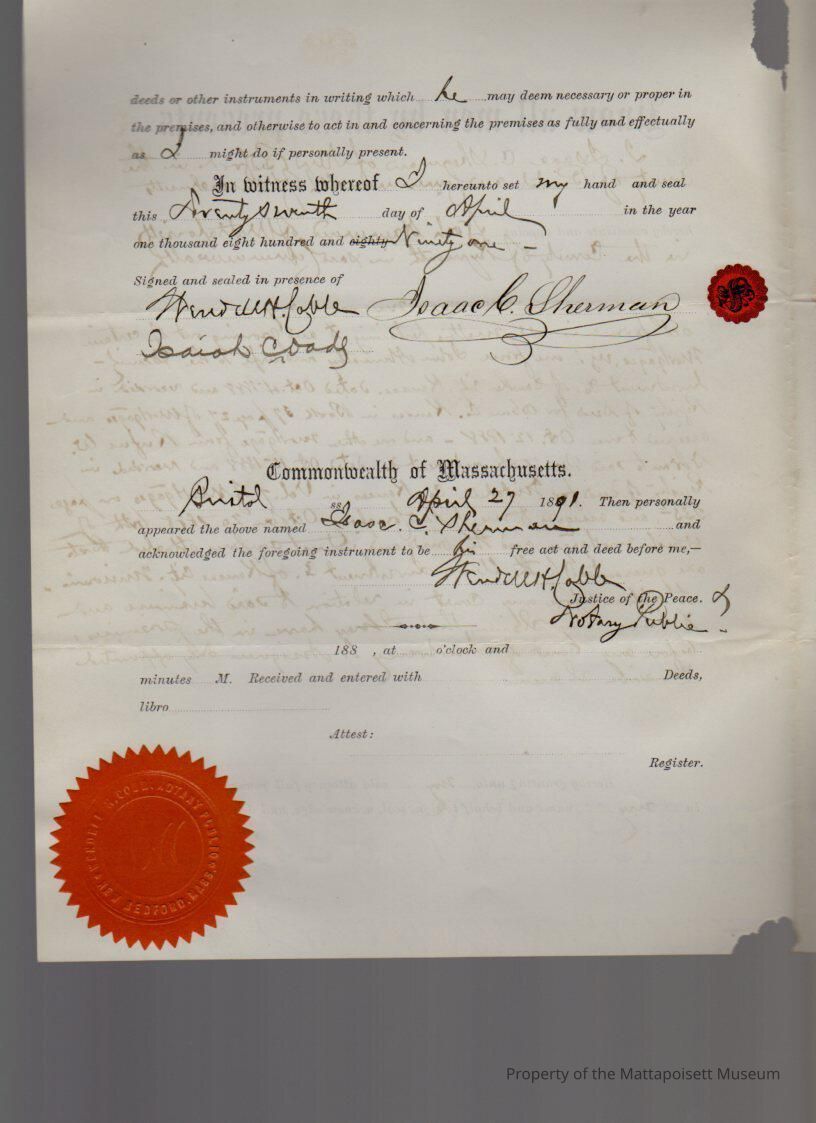 deeds or other instruments in writing which he may deem necessary or proper in
the premises, and otherwise to act in and concerning the premises as fully and effectually
as I might do if personally present.
In witness whereof I hereunto set my hand and seal
this Twenty seventh day of April in the year
one thousand eight hundred and eighty Ninety one -
Signed and sealed in presence of
Wendell H. Cobb Isaac C. Sherman
Isaiah
Commonwealth of Massachusetts.
Bristol ss. April 27 1891. Then personally
appeared the above named Isaac C. Sherman and
acknowledged the foregoing instrument to be his free act and deed before me,—
Wendell H. Cobb
Justice of the Peace. &
Notary Public -
188 , at o'clock and
minutes M. Received and entered with Deeds,
libro
Attest:
Register.
WENDELL H. COBB, NOTARY PUBLIC
NEW BEDFORD, MASS.
Property of the Mattapoisett Museum